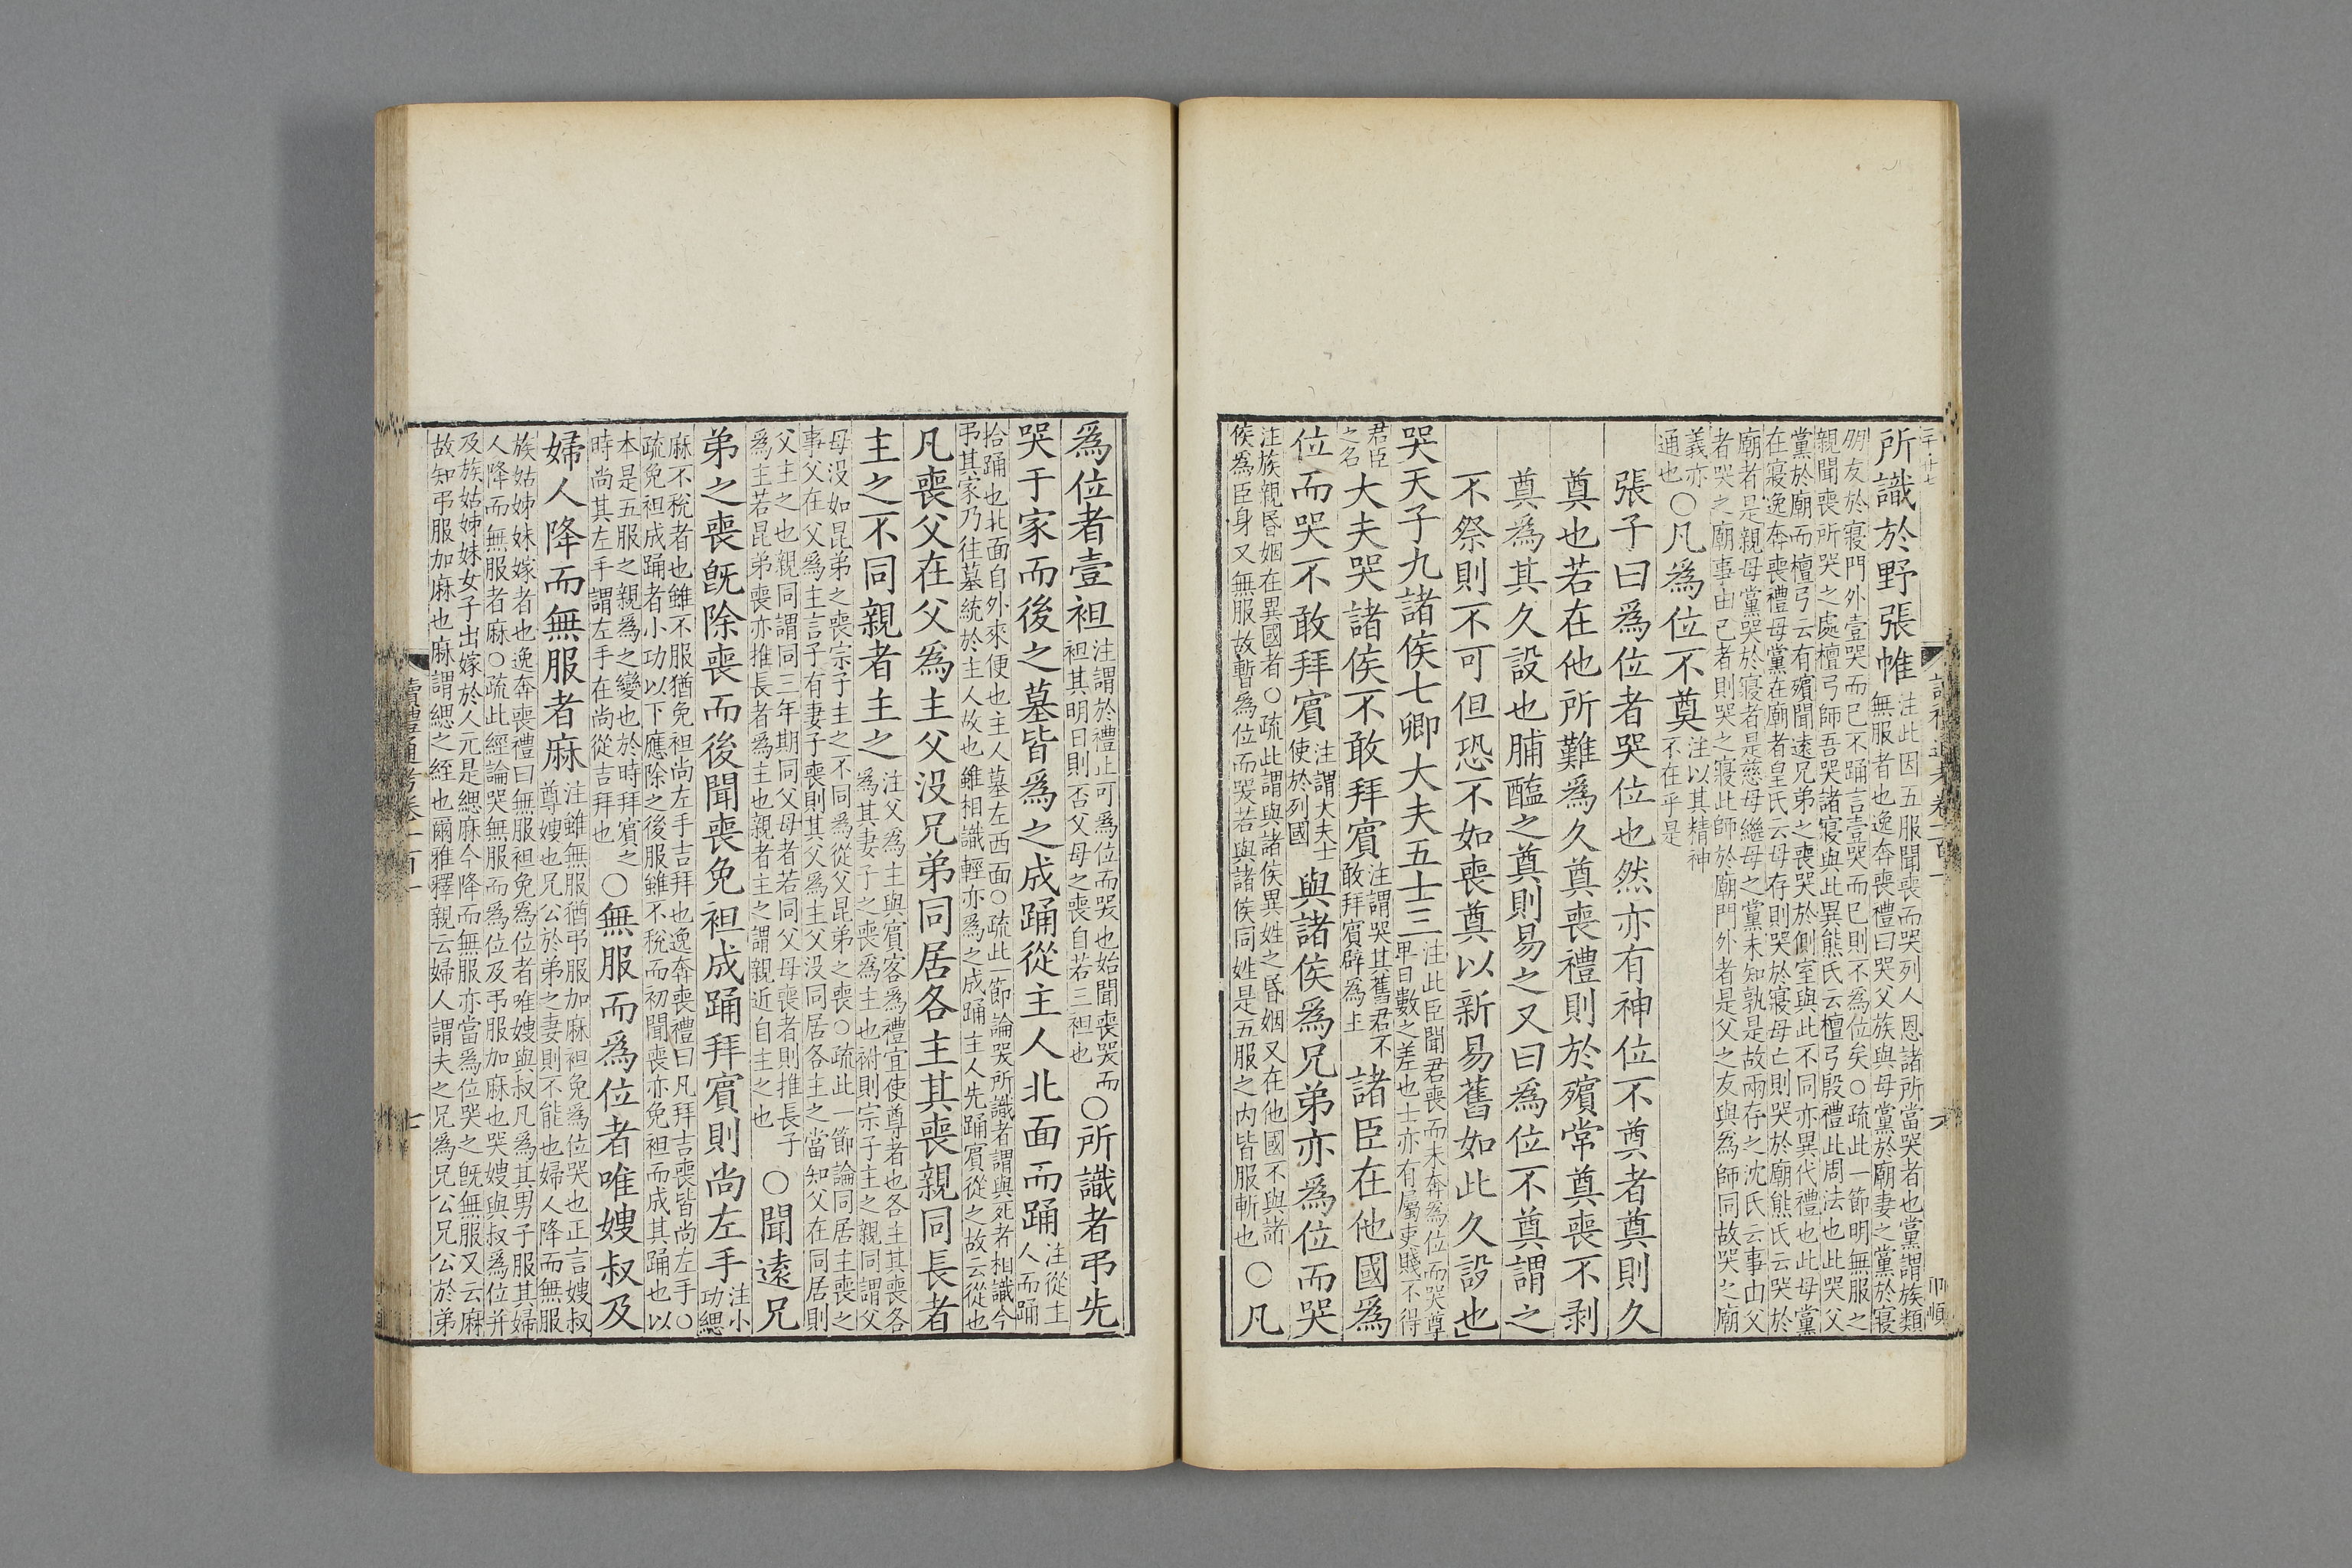 所識於野張帷注此因五服聞喪而哭列人恩諸所當哭者也黨謂族類
無服者也逸奔喪禮曰哭父族與母黨於廟妻之黨於寢
朋友於寢門外壹哭而已不踊言壹哭而已則不為位矣○疏此一節明無服之
親聞喪所哭之處檀弓師吾哭諸寢與此異熊氏云檀弓殷禮此周法也此哭父
黨於廟而檀弓云有殯聞遠兄弟之喪哭於側室與此不同亦異代禮也此母黨
在寢逸奔喪禮母黨在廟者皇氏云母存則哭於寢母亡則哭於廟熊氏云哭於
廟者是親母黨哭於寢者是慈母繼母之黨未知孰是故兩存之沈氏云事由父
者哭之廟事由己者則哭之寢此師於廟門外者是父之友與為師同故哭之廟
義亦
通也○凡為位不奠注以其精神
不在乎是
張子曰為位者哭位也然亦有神位不奠者奠則久
奠也若在他所難為久奠喪禮則於殯常奠喪不剥
奠為其久設也脯醢之奠則易之又曰為位不奠謂之
不祭則不可但恐不如喪奠以新易舊如此久設也
哭天子九諸侯七卿大夫五士三注此臣聞君喪而未奔為位而哭尊
卑日數之差也士亦有屬吏賤不得
君臣
之名大夫哭諸侯不敢拜賓注謂哭其舊君不
敢拜賓辟為主諸臣在他國為
位而哭不敢拜賓注謂大夫士
使於列國與諸侯為兄弟亦為位而哭
注族親昏姻在異國者○疏此謂與諸侯異姓之昏姻又在他國不與諸
侯為臣身又無服故暫為位而哭若與諸侯同姓是五服之内皆服斬也○凡
為位者壹袒注謂於禮止可為位而哭也始聞喪哭而
袒其明日則否父母之喪自若三袒也○所識者弔先
哭于家而後之墓皆為之成踊從主人北面而踊注從主
人而踊
拾踊也北面自外來便也主人墓左西面○疏此一節論哭所識者謂與死者相識今
弔其家乃往墓統於主人故也雖相識輕亦為之成踊主人先踊賓從之故云從也
凡喪父在父為主父没兄弟同居各主其喪親同長者
主之不同親者主之注父為主與賓客為禮宜使尊者也各主其喪各
為其妻子之喪為主也祔則宗子主之親同謂父
母没如昆弟之喪宗子主之不同為從父昆弟之喪○疏此一節論同居主喪之
事父在父為主言子有妻子喪則其父為主父没同居各主之當知父在同居則
父主之也親同謂同三年期同父母者若同父母喪者則推長子
為主若昆弟喪亦推長者為主也親者主之謂親近自主之也○聞遠兄
弟之喪既除喪而後聞喪免袒成踊拜賓則尚左手注小
功緦
麻不稅者也雖不服猶免袒尚左手吉拜也逸奔喪禮曰凡拜吉喪皆尚左手○
疏免袒成踊者小功以下應除之後服雖不稅而初聞喪亦免袒而成其踊也以
本是五服之親為之變也於時拜賓之
時尚其左手謂左手在尚從吉拜也○無服而為位者唯嫂叔及
婦人降而無服者麻注雖無服猶弔服加麻袒免為位哭也正言嫂叔
尊嫂也兄公於弟之妻則不能也婦人降而無服
族姑姊妹嫁者也逸奔喪禮曰無服袒免為位者唯嫂與叔凡為其男子服其婦
人降而無服者麻○疏此經論哭無服而為位及弔服加麻也哭嫂與叔為位并
及族姑姊妹女子出嫁於人元是緦麻今降而無服亦當為位哭之既無服又云麻
故知弔服加麻也麻謂緦之絰也爾雅釋親云婦人謂夫之兄為兄公兄公於弟
讀禮通考卷一百一